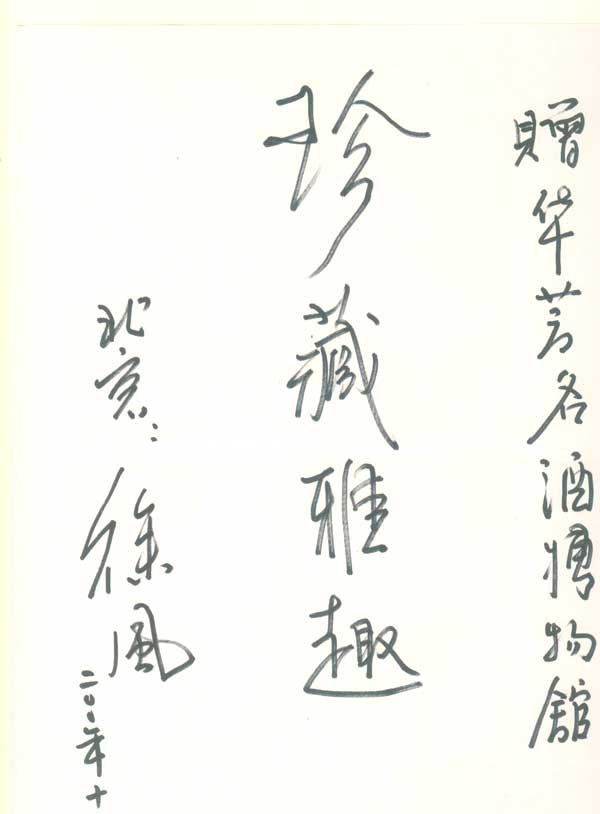 贈华芳名酒博物館
珍藏雅趣
北京：徐風
二〇〇〇年十